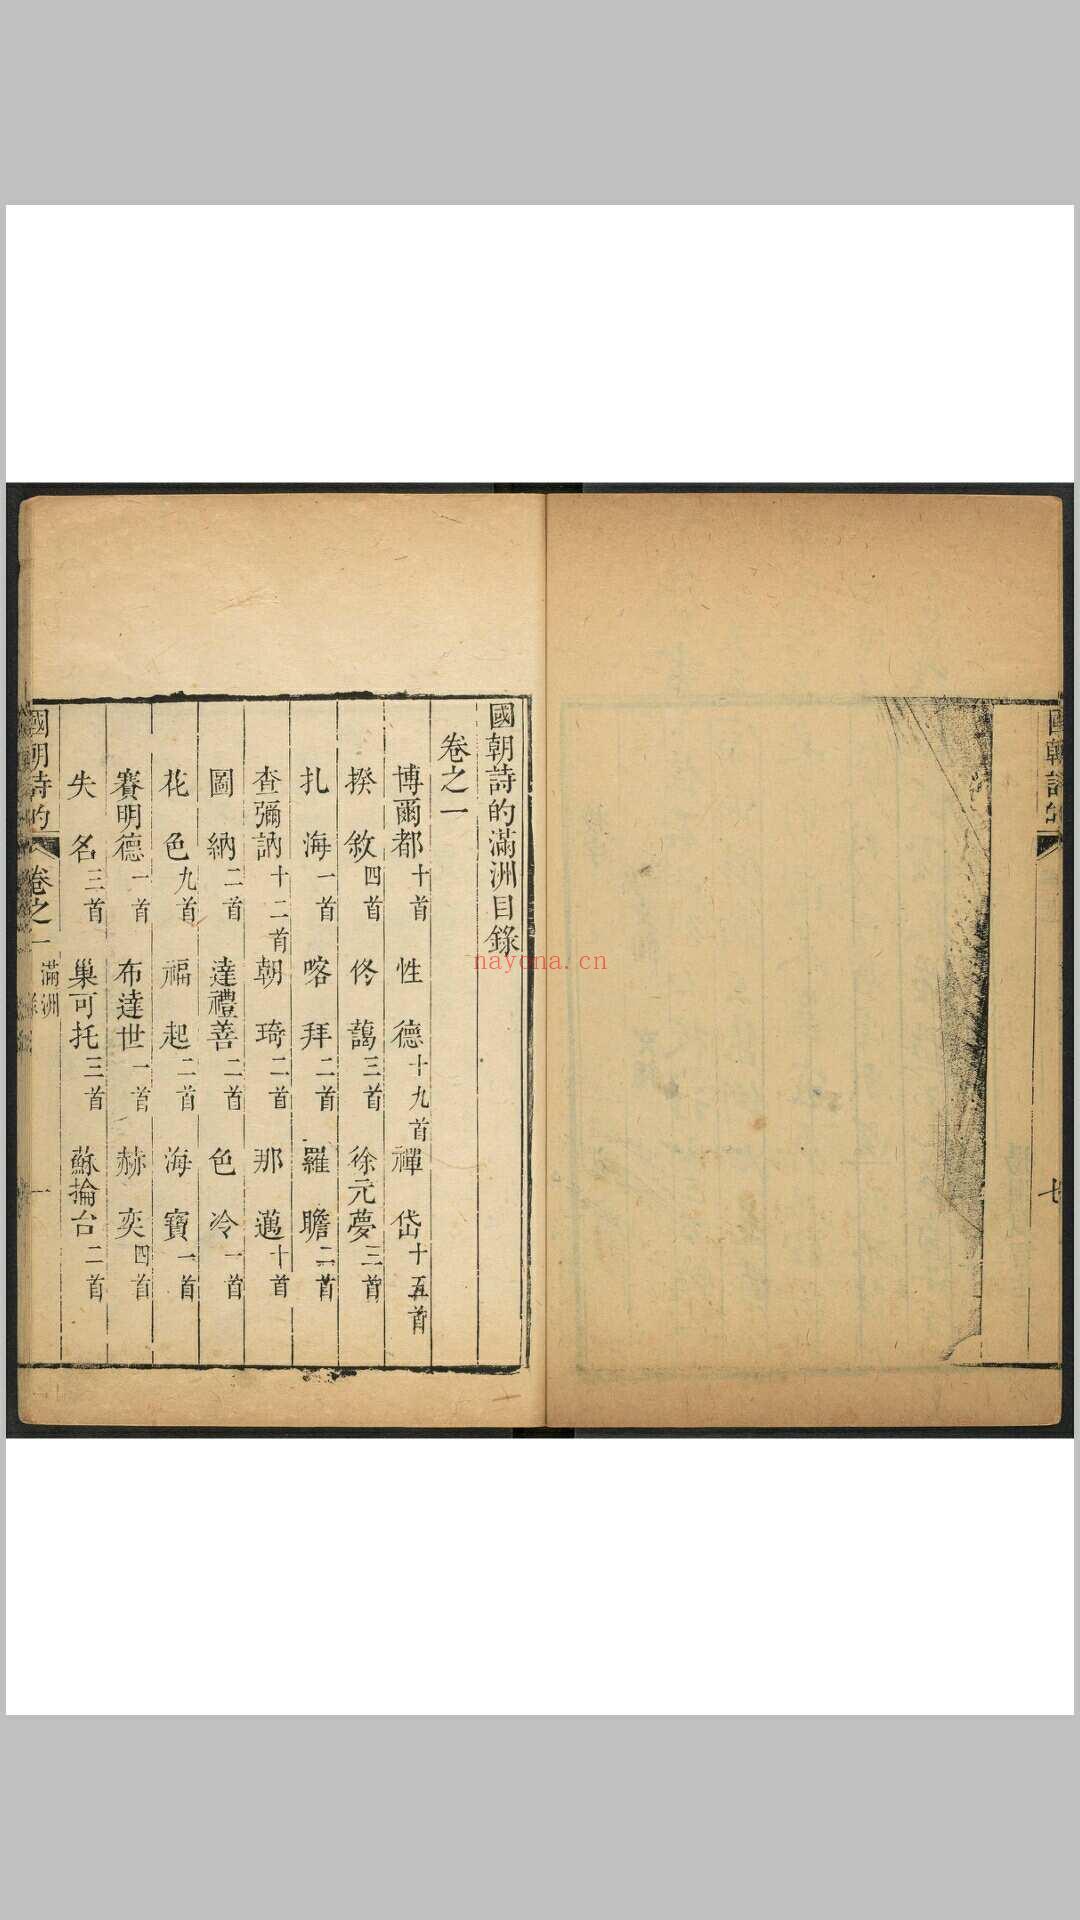 國朝詩
七
國朝詩的滿洲目錄
卷之一
博爾都十首 性德十九首 禪岱十五首
揆敘四首 佟藹三首 徐元夢三首
扎海一首 喀拜二首 羅瞻二首
查彌訥十二首 朝琦二首 那邁十首
圖納二首 達禮善二首 色冷一首
花色九首 福起二首 海寶一首
賽明德一首 布達世一首 赫奕四首
失名三首 巢可托三首 蘇掄台二首
國朝詩的 卷之一 滿洲 一
nayona.cn